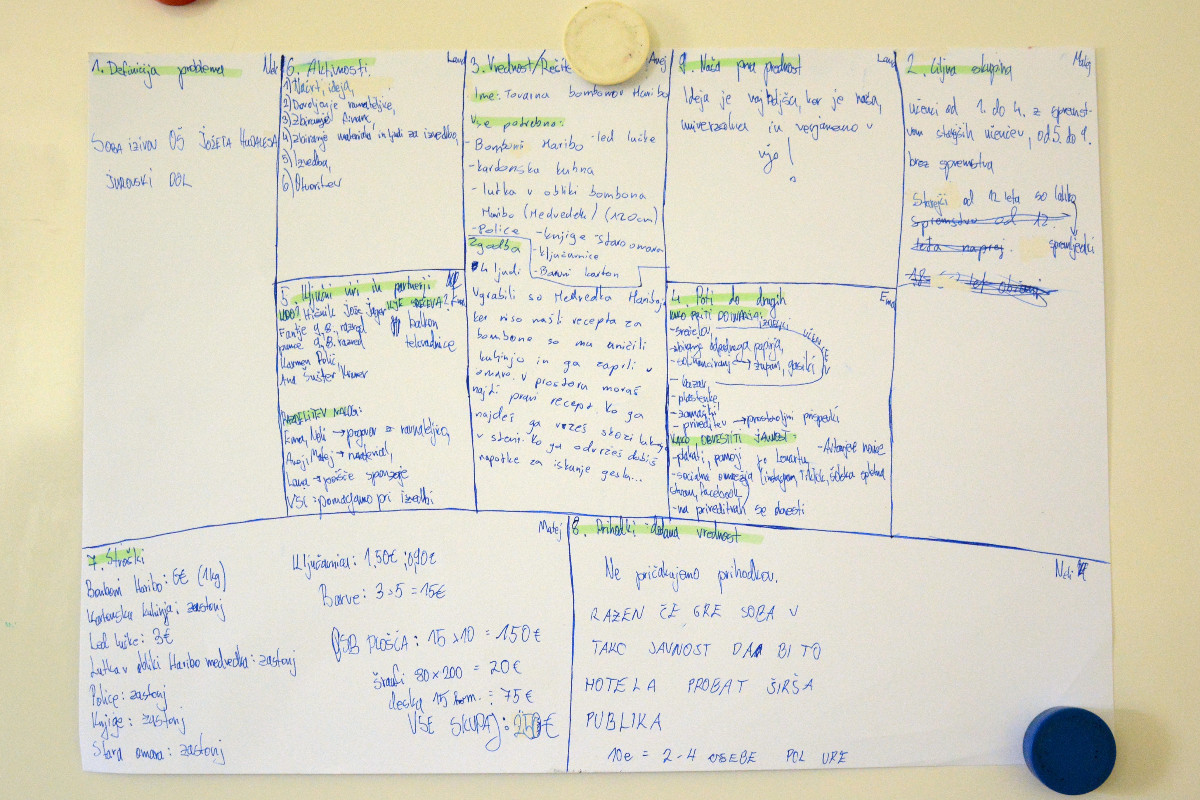 1. Definicija problema
SOBA IZZIVOV OŠ JOŽETA HUDALESA
JUROVSKI DOL
6. Aktivnosti
1) Načrt, ideja,
2) Dovoljenje ravnateljice,
3) Zbiranje financ,
4) Zbiranje materiala in ljudi za izvedbo,
5) Izvedba,
6) Otvoritev
3. Vrednost/Rešite
Anej
Ime: Tovarna bombonov Haribo
Vse potrebno:
- Bomboni Haribo - led lučke
- kartonska kuhna
- lutka v obliki bombona
Haribo (Medvedek) (120cm)
- Police - knjige - stara omara
- ključavnice
- Barvni karton
Zgodba
4 ljudi
Ugrabili so Medvedka Hariboja
ker niso našli recepta za
bombone so mu uničili
kuhinjo in ga zaprli v
omaro. V prostoru moraš
najti pravi recept. Ko ga
najdeš ga vržeš skozi luknjo
v steni. Ko ga odvržeš dobiš
napotke za iskanje gesla...
9. Naša prva prednost
Ideja je najboljša, ker je naša,
univerzalna in verjamemo v
njo!
2. Ciljna skupina
Matej
Učenci od 1. do 4. z spremst-
vom starejših učencev, od 5. do 9.
brez spremstva
Starejši od 12 leta so lahko
spremstvo od 12.
leta naprej. spremljevalci
5. Ključni viri in partnerji
KDO? Hišnik Jože
KJE
Fantje 9.B, razred balkon
punce 9.B, razred telovadnice
Karmen Polič,
Ana Šuster Kraner
RAZDELITEV NALOG:
Ema, Neli → pogovor z ravnateljico,
Anej, Matej → material,
Lana → prošnje sponzorje
VSI: pomagamo pri izvedbi
4. Poti do drugih
Ema
KAKO PRITI DO DENARJA:
- srečelov, IZDELKI UČENCEV
- zbiranje odpadnega papirja,
- solifinanciranje → župan, gasilci
- bazar,
- plastenke
- zamaški
- prireditev → prostovoljni prispevki
KAKO OBVESTITI JAVNOST:
- plakati, pomoji po Lenartu, - Ovtarjeve novice
- socialna omrežja (instagram, Tiktok, šolska spletna
stran, facebook)
- na prireditvah se povesti
7. Stroški
Matej
Bomboni Haribo: 6€ (1kg)
Kartonska kuhinja: zastonj
Led lučke: 3€
Lutka v obliki Haribo medvedka: zastonj
Police: zastonj
Knjige: zastonj
Stara omara: zastonj
Ključavnica: 1,50€ ; 0,90€
Barve: 3×5 = 15€
OSB PLOŠČA: 15×10 = 150€
šraufi 80×200 = 20€
deska 15 kom. = 75€
VSE SKUPAJ: 250€
8. Prihodki - dodana vrednost
Neli
Ne pričakujemo prihodkov.
RAZEN ČE GRE SOBA V
TAKO JAVNOST DA BI TO
HOTELA PROBAT ŠIRŠA
PUBLIKA
10e = 2-4 OSEBE POL URE